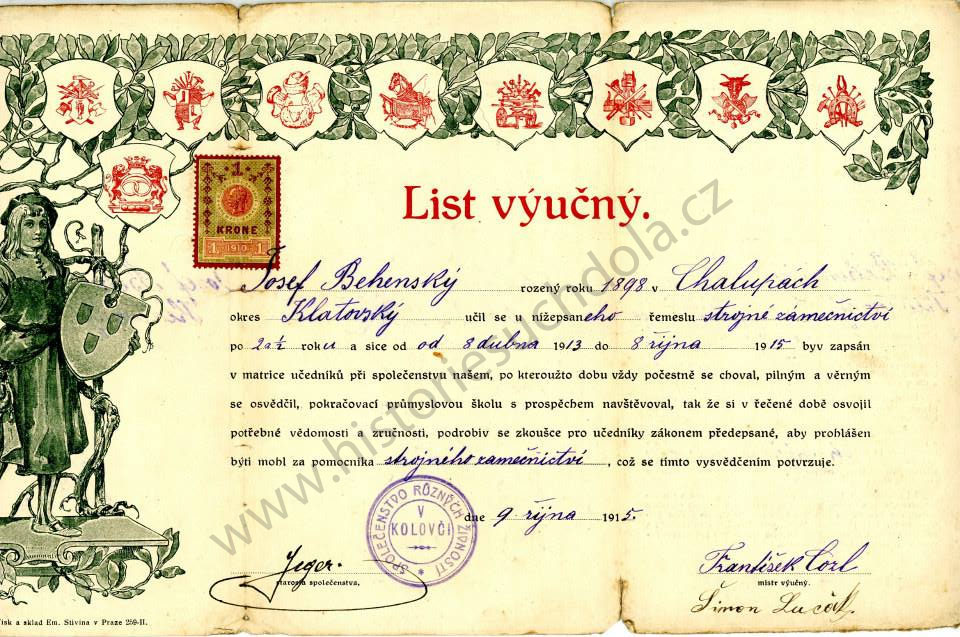 1
KRONE
1 1910 1
List výučný.
Josef Behenský rozený roku 1898 v Chalupách
okres Klatovský učil se u nížepsaného řemeslu strojné zámečnictví
po 2a½ roku a sice od od 8 dubna 1913 do 8 října 1915 byv zapsán
v matrice učedníků při společenstvu našem, po kteroužto dobu vždy počestně se choval, pilným a věrným
se osvědčil, pokračovací průmyslovou školu s prospěchem navštěvoval, tak že si v řečené době osvojil
potřebné vědomosti a zručnosti, podrobiv se zkoušce pro učedníky zákonem předepsané, aby prohlášen
býti mohl za pomocníka strojného zamečnictví, což se tímto vysvědčením potvrzuje.
dne 9 října 1915.
SPOLEČENSTVO RŮZNÝCH ŽIVNOSTÍ
V
KOLOVČI
Jeger.
starosta společenstva,
František Cörl
mistr výučný.
Šimon
Tisk a sklad Em. Stivína v Praze 259-II.
www.historiestichdola.cz